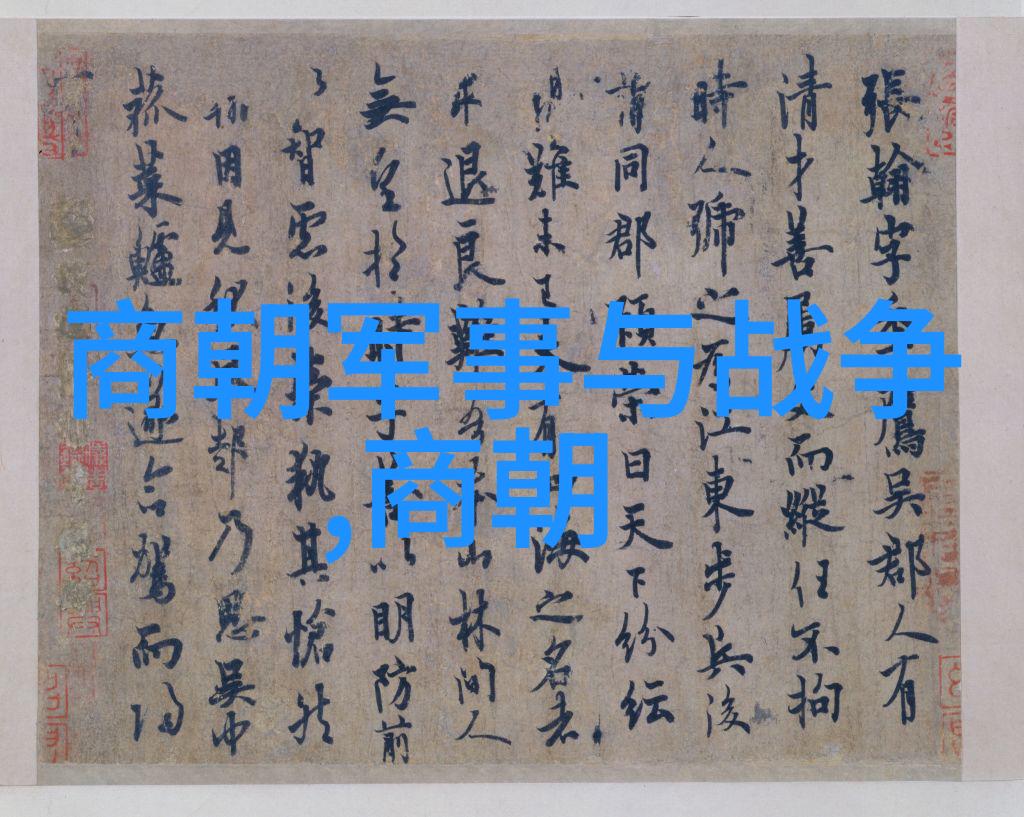 商朝军事与战争
,商朝
張翰字季鷹吳郡人有
清才善屬文而縱任不拘
時人號之為江東步兵後
同郡顧榮曰天下紛紜
難未已夫有四海之名者
求退良難吾本山林間人
無望於時子善以明防前
以智慮後榮執其愴然
因見秋起乃思吳中
菰菜鱸魚遂命駕而歸